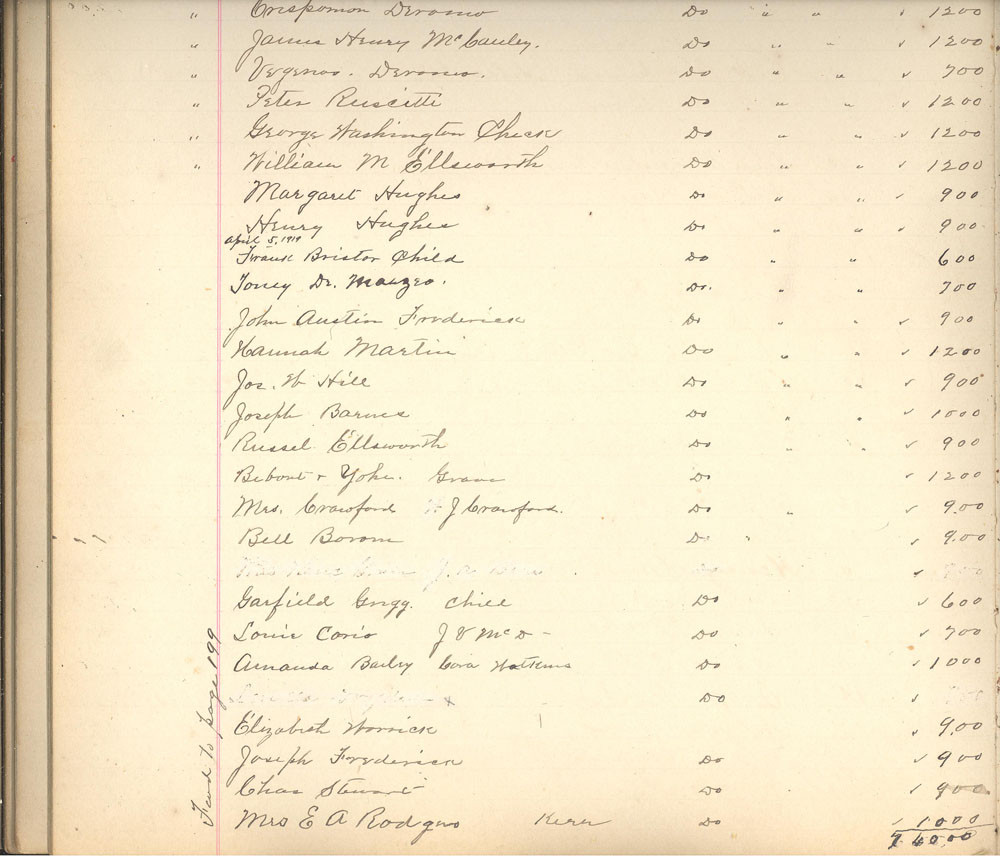 " Crispomon Derosmo Do " " ✓ 1200
" James Henry McCauley. Do " " ✓ 1200
" Vergenos. Derosmo. Do " " ✓ 700
" Peter Ruscitti Do " " ✓ 1200
" George Washington Check Do " " ✓ 1200
" William M Ellsworth Do " " ✓ 1200
Margaret Hughes Do " " ✓ 900
Henry Hughes Do " " ✓ 900
April 5, 1919
Frank Bristor Child Do " " 600
Toney De. Mauzeo. Do. " " 700
John Austin Frederick Do " " ✓ 900
Hannah Martin Do " " ✓ 1200
Jos. W Hill Do " " ✓ 900
Joseph Barnes Do " " ✓ 1000
Russel Ellsworth Do " " ✓ 900
Bebout & Yoho. Grave Do ✓ 1200
Mrs. Crawford J Crawford. Do " ✓ 9.00
Bell Borom Do " ✓ 9.00
✓
Garfield Grigg. Chill Do ✓ 600
Louie Corio J V McD - Do ✓ 700
Amanda Baily Cora Watkins Do ✓ 1000
Do ✓
Elizabeth Worrick ✓ 9.00
Joseph Frederick Do ✓ 900
Chas Stewart Do ✓ 900
Mrs E A Rodgers Kerr Do ✓ 1000
74000
to page 199